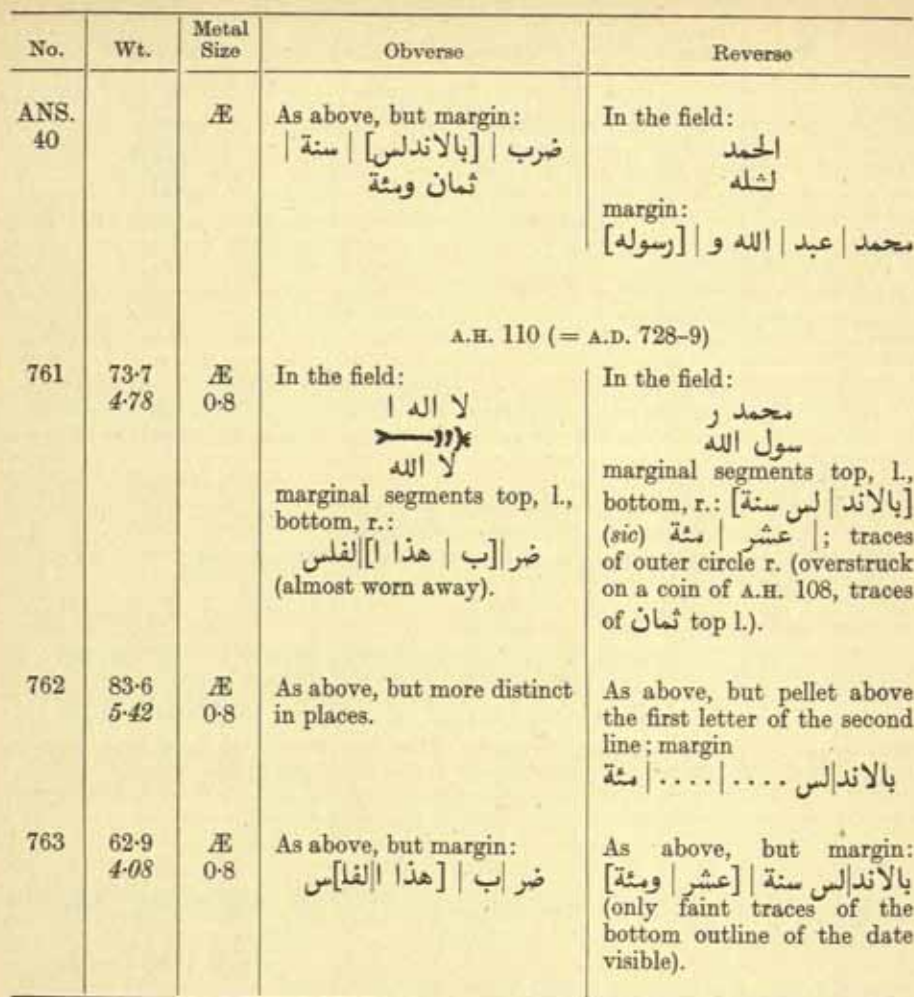 No. Wt. Metal Size Obverse Reverse
ANS. 40 Æ
As above, but margin:
ضرب | [بالاندلس] | سنة |
ثمان ومئة
In the field:
الحمد
لشله
margin:
محمد | عبد | الله و | [رسوله]
A.H. 110 (= A.D. 728–9)
761 73·7 4·78 Æ 0·8
In the field:
لا اله ا
لا الله
marginal segments top, l.,
bottom, r.:
ضر|[ب | هذا ا]|لفلس
(almost worn away).
In the field:
محمد ر
سول الله
marginal segments top, l.,
bottom, r.: [بالاند | لس سنة]
(sic) | عشر | مئة; traces
of outer circle r. (overstruck
on a coin of A.H. 108, traces
of ثمان top l.).
762 83·6 5·42 Æ 0·8
As above, but more distinct
in places.
As above, but pellet above
the first letter of the second
line; margin
بالاند|لس ....|....| مئة
763 62·9 4·08 Æ 0·8
As above, but margin:
ضر |ب | [هذا ا|لفلـ]س
As above, but margin:
بالاند|لس سنة | [عشر | ومئة]
(only faint traces of the
bottom outline of the date
visible).